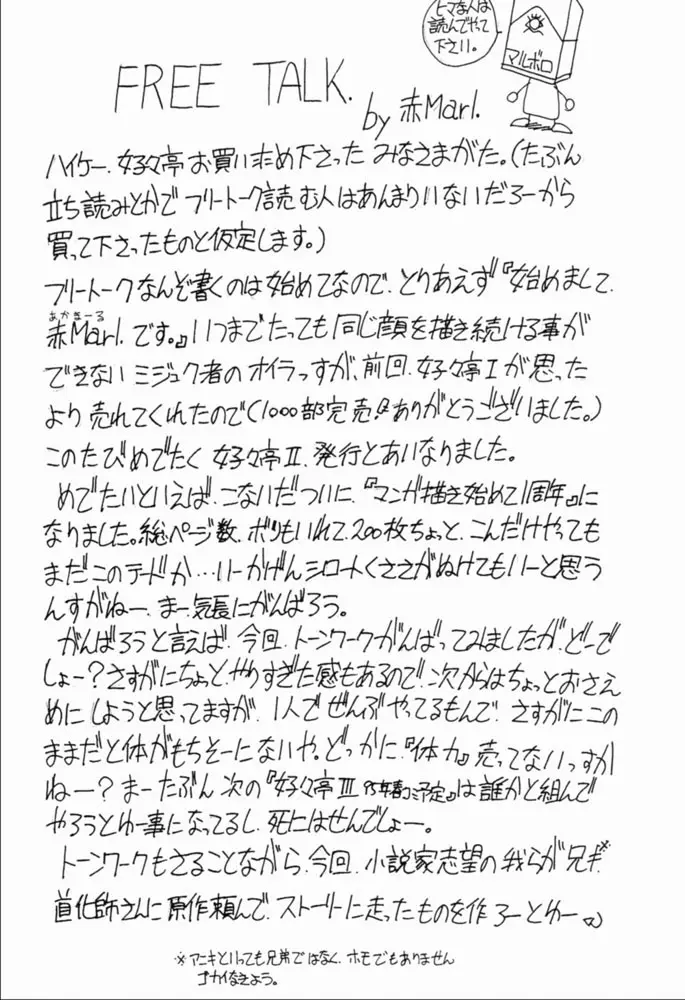 ヒマな人は
読んでやって
下さい。
マルボロ
FREE TALK.
by 赤Marl.
ハイケー、好々亭お買い求め下さったみなさまがた。(たぶん
立ち読みとかでフリートーク読む人はあんまりいないだろーから
買って下さったものと仮定します。)
フリートークなんぞ書くのは始めてなので、とりあえず『始めまして、
あかまーる
赤Marl.です。』いつまでたっても同じ顔を描き続ける事が
できないミジュク者のオイラっすが、前回、好々亭Iが思った
より売れてくれたので(1000部完売!!ありがとうございました。)
このたびめでたく好々亭II、発行とあいなりました。
めでたいといえば、こないだついに、『マンガ描き始めて1周年』に
なりました。総ページ数、ボツもいれて、200枚ちょっと、こんだけやっても
まだこのテードか…いーかげんシロートくささがぬけてもいーと思う
んすがねー、まー、気長にがんばろう。
がんばろうと言えば、今回、トーンワークがんばってみましたが、どーで
しょー?さすがにちょっとやりすぎた感もあるので、次からはちょっとおさえ
めにしようと思ってますが、1人でぜんぶやってるもんで、さすがにこの
ままだと体がもちそーにないや。どっかに、『体力』売ってないっすか
ねー?まーたぶん次の『好々亭III 95年春コミ予定』は誰かと組んで
やろうとゆー事になってるし、死にはせんでしょー。
トーンワークもさることながら、今回、小説家志望の我らが兄キ※
道化師さんに原作頼んで、ストーリーに走ったものを作ろーとゆー
※アニキといっても兄弟ではなく、ホモでもありません
ゴカイなきよう。